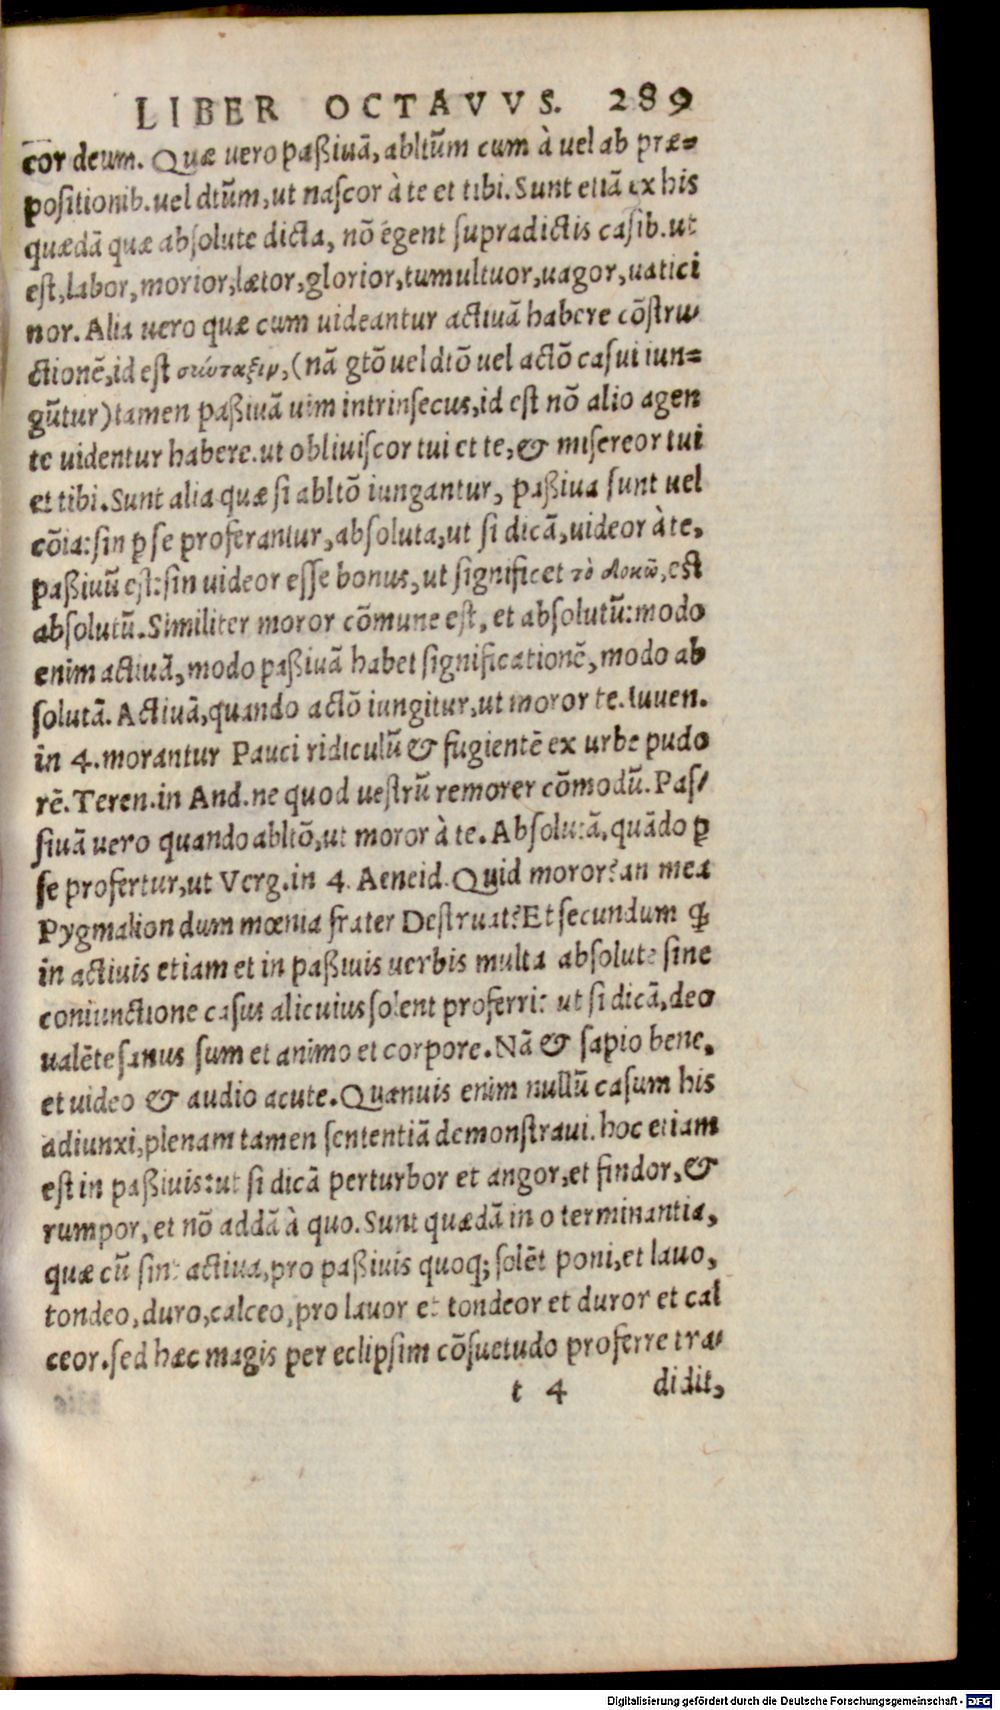 LIBER OCTAVVS. 289
cor deum. Quæ uero paßiuā, abltūm cum à uel ab præ=
positionib. uel dtūm, ut nascor à te et tibi. Sunt etiā ex his
quædā quæ absolute dicta, nō égent supradictis casib. ut
est, labor, morior, lætor, glorior, tumultuor, uagor, uatici
nor. Alia uero quæ cum uideantur actiuā habere cōstru-
ctionē, id est σύνταξιν, (nā gtō uel dtō uel actō casui iun=
gūtur) tamen paßiuā uim intrinsecus, id est nō alio agen
te uidentur habere. ut obliuiscor tui et te, & misereor tui
et tibi. Sunt alia quæ si abltō iungantur, paßiua sunt uel
cōia: sin ꝑ se proferantur, absoluta, ut si dicā, uideor à te,
paßiuū est: sin uideor esse bonus, ut significet τὸ δοκῶ, est
absolutū. Similiter moror cōmune est, et absolutū: modo
enim actiuā, modo paßiuā habet significationē, modo ab
solutā. Actiuā, quando actō iungitur, ut moror te. Iuuen.
in 4. morantur Pauci ridiculū & fugientē ex urbe pudo
rē. Teren. in And. ne quod uestrū remorer cōmodū. Pas-
siuā uero quando abltō, ut moror à te. Absolutā, quādo ꝑ
se profertur, ut Verg. in 4. Aeneid. Quid moror? an mea
Pygmalion dum mœnia frater Destruat? Et secundum ꝙ
in actiuis etiam et in paßiuis uerbis multa absolute sine
coniunctione casus alicuius solent proferri: ut si dicā, deo
ualēte sanus sum et animo et corpore. Nā & sapio bene,
et uideo & audio acute. Quanuis enim nullū casum his
adiunxi, plenam tamen sententiā demonstraui. hoc etiam
est in paßiuis: ut si dicā perturbor et angor, et findor, &
rumpor, et nō addā à quo. Sunt quædā in o terminantia,
quæ cū sint actiua, pro paßiuis quoq; solēt poni, et lauo,
tondeo, duro, calceo, pro lauor et tondeor et duror et cal
ceor. sed hæc magis per eclipsim cōsuetudo proferre tra-
t 4 didit,
Digitalisierung gefördert durch die Deutsche Forschungsgemeinschaft - DFG